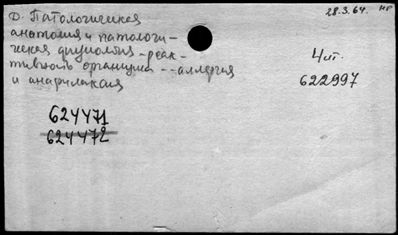 28.3.64. нг
Д. Патологическая
анатомия и патологи-
ческая физиология - реак-
тивность организма -- аллергия
и анафилаксия
4 чит.
622997
624471
624472